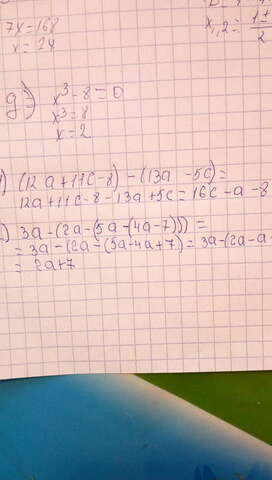 7x=168
x=24
x₁,₂=
g) x³-8=0
x³=8
x=2
(12a+11c-8)-(13a-5c)=
12a+11c-8-13a+5c=16c-a-8
3a-(2a-(5a-(4a-7)))=
=3a-(2a-(5a-4a+7)=3a-(2a-a-
=2a+7